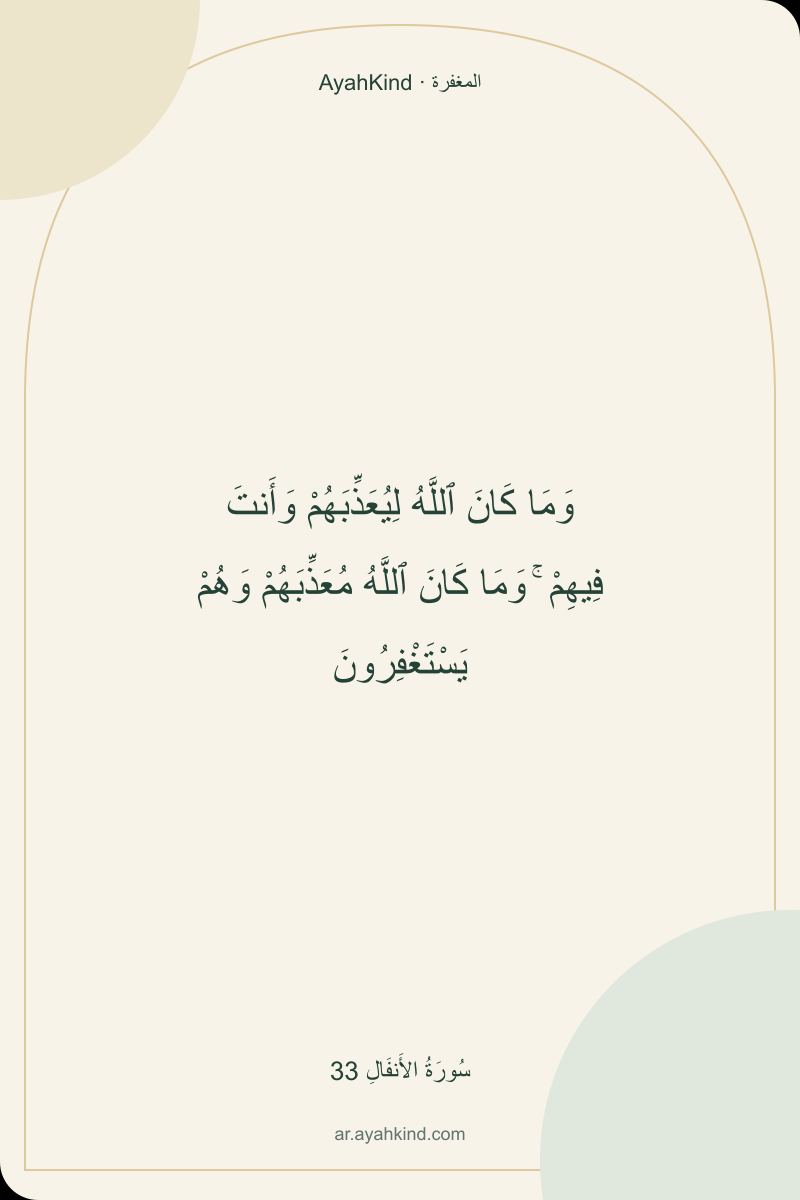 AyahKind · المغفرة
وَمَا كَانَ ٱللَّهُ لِيُعَذِّبَهُمْ وَأَنتَ
فِيهِمْ ۚ وَمَا كَانَ ٱللَّهُ مُعَذِّبَهُمْ وَهُمْ
يَسْتَغْفِرُونَ
سُورَةُ الأَنفَالِ 33
ar.ayahkind.com